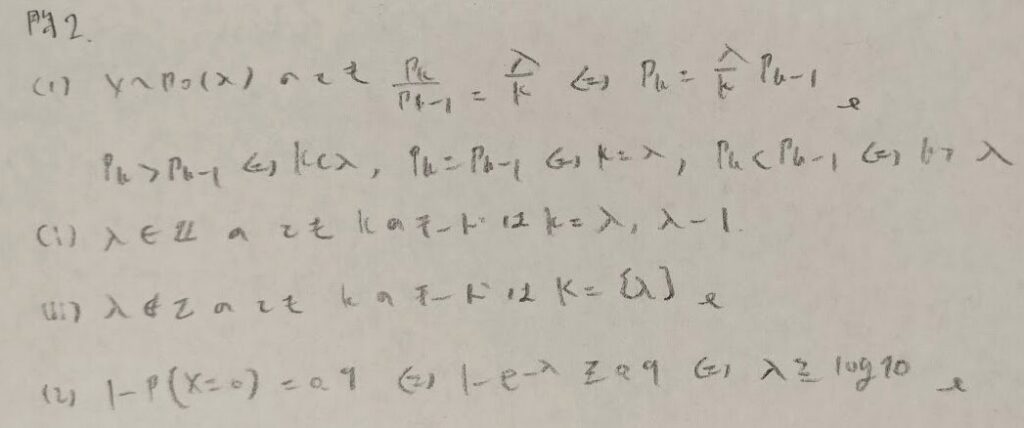 問2.
(1) X~Po(λ) のとき Pk/Pk-1 = λ/k ⇔ Pk = λ/k Pk-1
Pk > Pk-1 ⇔ k<λ, Pk = Pk-1 ⇔ k=λ, Pk < Pk-1 ⇔ k>λ
(i) λ∈ℤ のとき kのモードは k=λ, λ-1.
(ii) λ∉Z のとき kのモードは k=[λ]
(2) 1-P(X=0) = 0.9 ⇔ 1-e^-λ ≧ 0.9 ⇔ λ ≧ log10